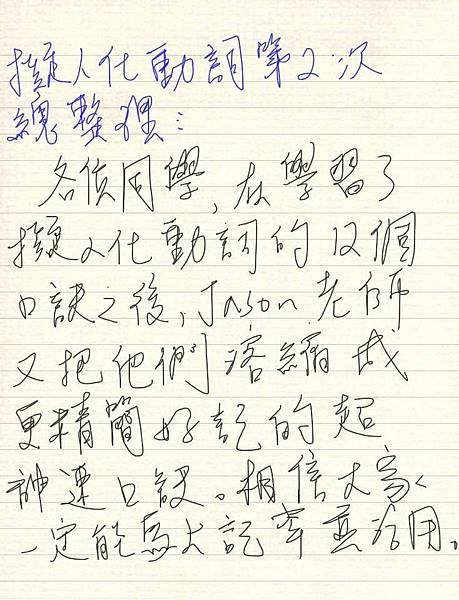 擬人化動詞第2次
總整理:
各位同學,在學習了
擬人化動詞的12個
口訣之後,Jason老師
又把他們濃縮成
更精簡好記的超
神速口訣。相信大家
一定能馬上記牢並活用。